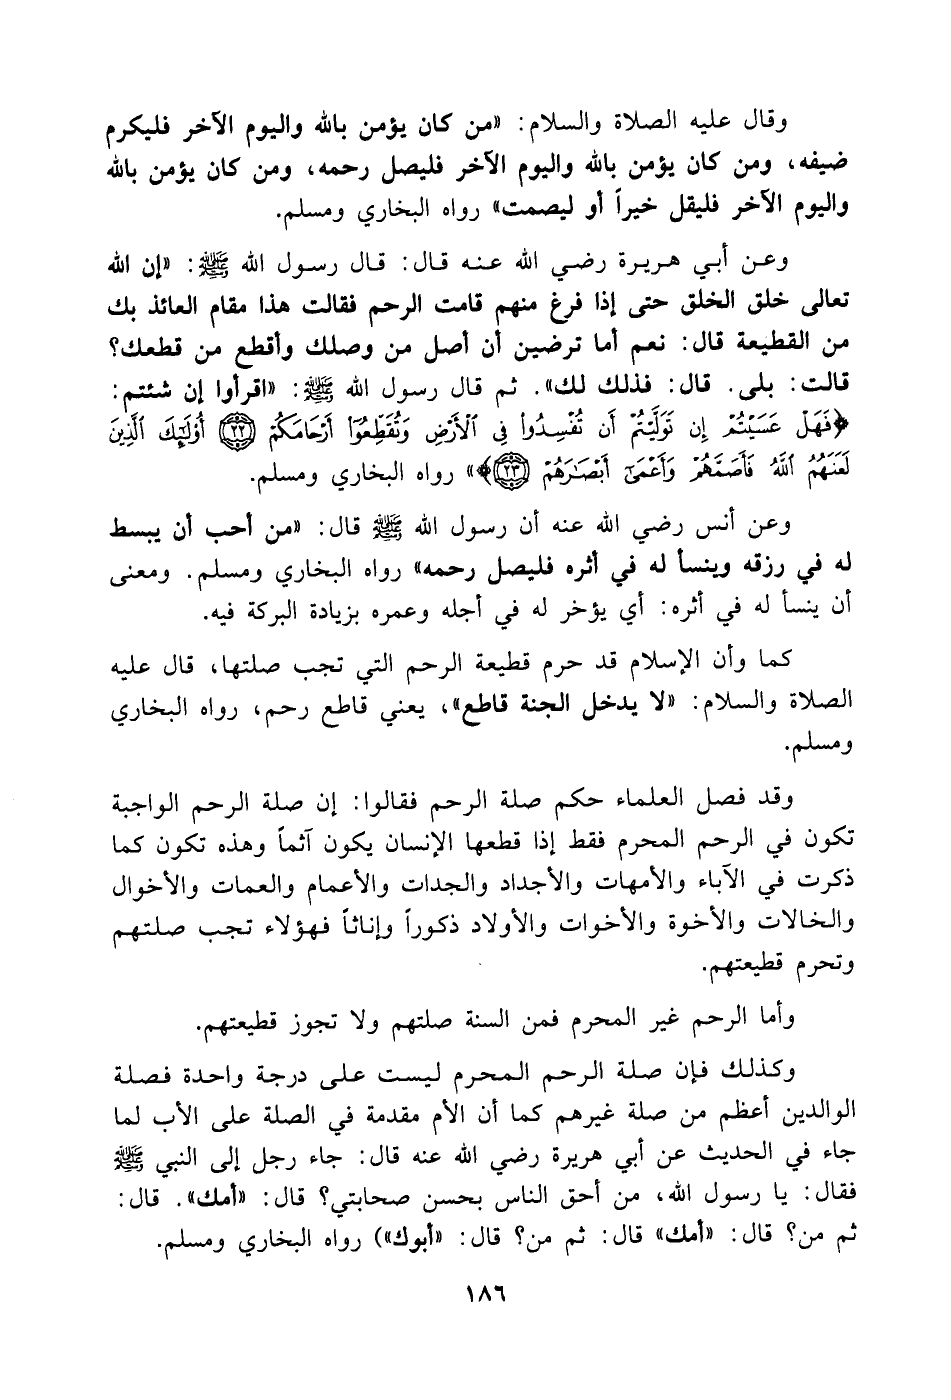 وقال عليه الصلاة والسلام: «من كان يؤمن بالله واليوم الآخر فليكرم
ضيفه، ومن كان يؤمن بالله واليوم الآخر فليصل رحمه، ومن كان يؤمن بالله
واليوم الآخر فليقل خيراً أو ليصمت» رواه البخاري ومسلم.
وعن أبي هريرة رضي الله عنه قال: قال رسول الله ﷺ: «إن الله
تعالى خلق الخلق حتى إذا فرغ منهم قامت الرحم فقالت هذا مقام العائذ بك
من القطيعة قال: نعم أما ترضين أن أصل من وصلك وأقطع من قطعك؟
قالت: بلى. قال: فذلك لك». ثم قال رسول الله ﷺ: «اقرأوا إن شئتم:
﴿فَهَلْ عَسَيْتُمْ إِن تَوَلَّيْتُمْ أَن تُفْسِدُوا۟ فِى ٱلْأَرْضِ وَتُقَطِّعُوٓا۟ أَرْحَامَكُمْ ۝٢٢ أُو۟لَٰٓئِكَ ٱلَّذِينَ
لَعَنَهُمُ ٱللَّهُ فَأَصَمَّهُمْ وَأَعْمَىٰٓ أَبْصَٰرَهُمْ ۝٢٣﴾» رواه البخاري ومسلم.
وعن أنس رضي الله عنه أن رسول الله ﷺ قال: «من أحب أن يبسط
له في رزقه وينسأ له في أثره فليصل رحمه» رواه البخاري ومسلم. ومعنى
أن ينسأ له في أثره: أي يؤخر له في أجله وعمره بزيادة البركة فيه.
كما وأن الإسلام قد حرم قطيعة الرحم التي تجب صلتها، قال عليه
الصلاة والسلام: «لا يدخل الجنة قاطع»، يعني قاطع رحم، رواه البخاري
ومسلم.
وقد فصل العلماء حكم صلة الرحم فقالوا: إن صلة الرحم الواجبة
تكون في الرحم المحرم فقط إذا قطعها الإنسان يكون آثماً وهذه تكون كما
ذكرت في الآباء والأمهات والأجداد والجدات والأعمام والعمات والأخوال
والخالات والأخوة والأخوات والأولاد ذكوراً وإناثاً فهؤلاء تجب صلتهم
وتحرم قطيعتهم.
وأما الرحم غير المحرم فمن السنة صلتهم ولا تجوز قطيعتهم.
وكذلك فإن صلة الرحم المحرم ليست على درجة واحدة فصلة
الوالدين أعظم من صلة غيرهم كما أن الأم مقدمة في الصلة على الأب لما
جاء في الحديث عن أبي هريرة رضي الله عنه قال: جاء رجل إلى النبي ﷺ
فقال: يا رسول الله، من أحق الناس بحسن صحابتي؟ قال: «أمك». قال:
ثم من؟ قال: «أمك» قال: ثم من؟ قال: «أبوك») رواه البخاري ومسلم.
١٨٦